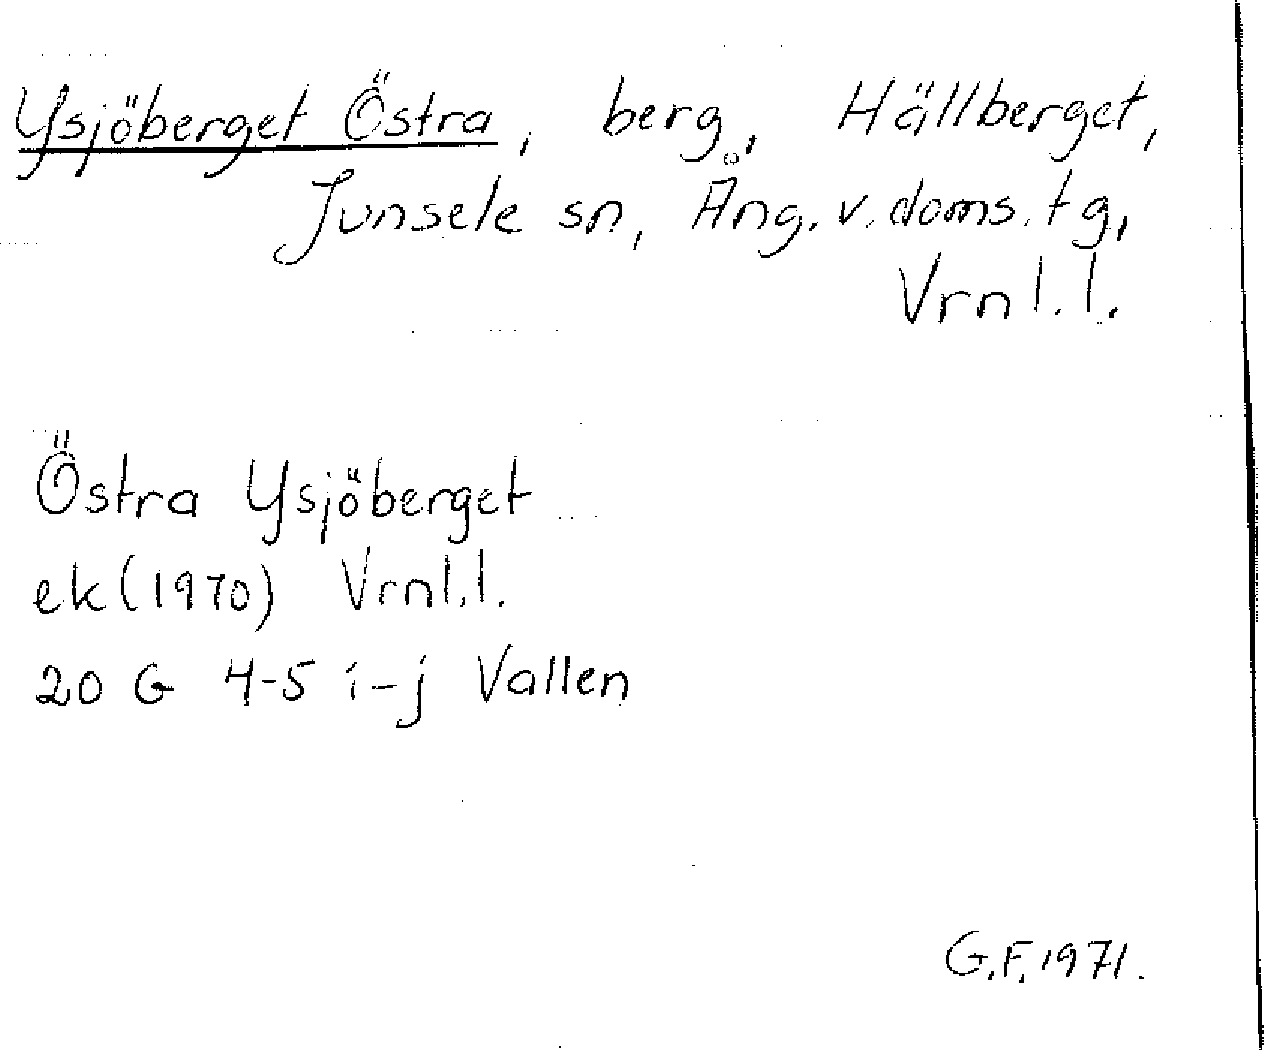 Ysjöberget Östra, berg, Hällberget,
Junsele sn, Ång. v. doms. tg,
Vrnl. l.
Östra Ysjöberget
ek (1970) Vrnl. l.
20 G 4-5 i-j Vallen
G.F. 1971.